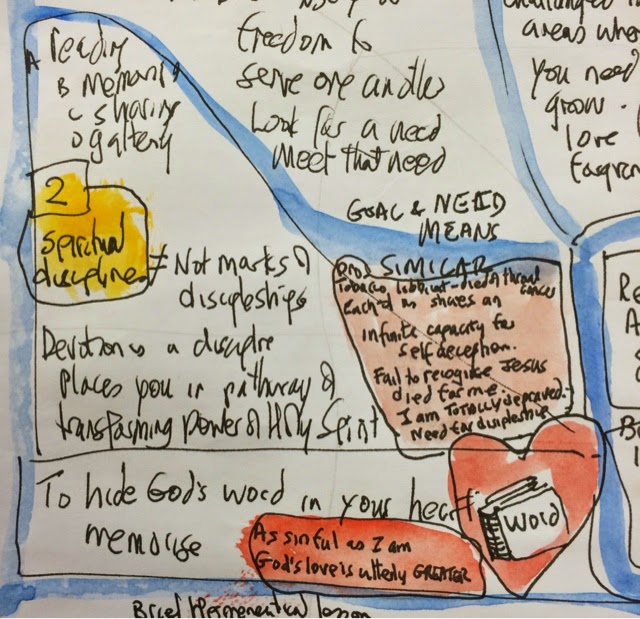 A reading
B Memorising
C sharing
D gathering
Freedom to
serve one another
Look for a need
Meet that need
areas where
you need
grow.
love
2
spiritual
disciplines
≠ Not marks of
discipleships
GOAL & NEED
MEANS
SIMILAR
Tobacco lobbyist - died of throat cancer
Each of us shares an
infinite capacity for
self deception.
Fail to recognise JESUS
died for me.
I am TOTALLY depraved.
Need for discipleship
Devotion is a discipline
places you in pathway of
transforming power of Holy Spirit
To hide God's word in your heart
memorise
WORD
As sinful as I am
God's love is utterly GREATER
Brief Hermeneutical lesson